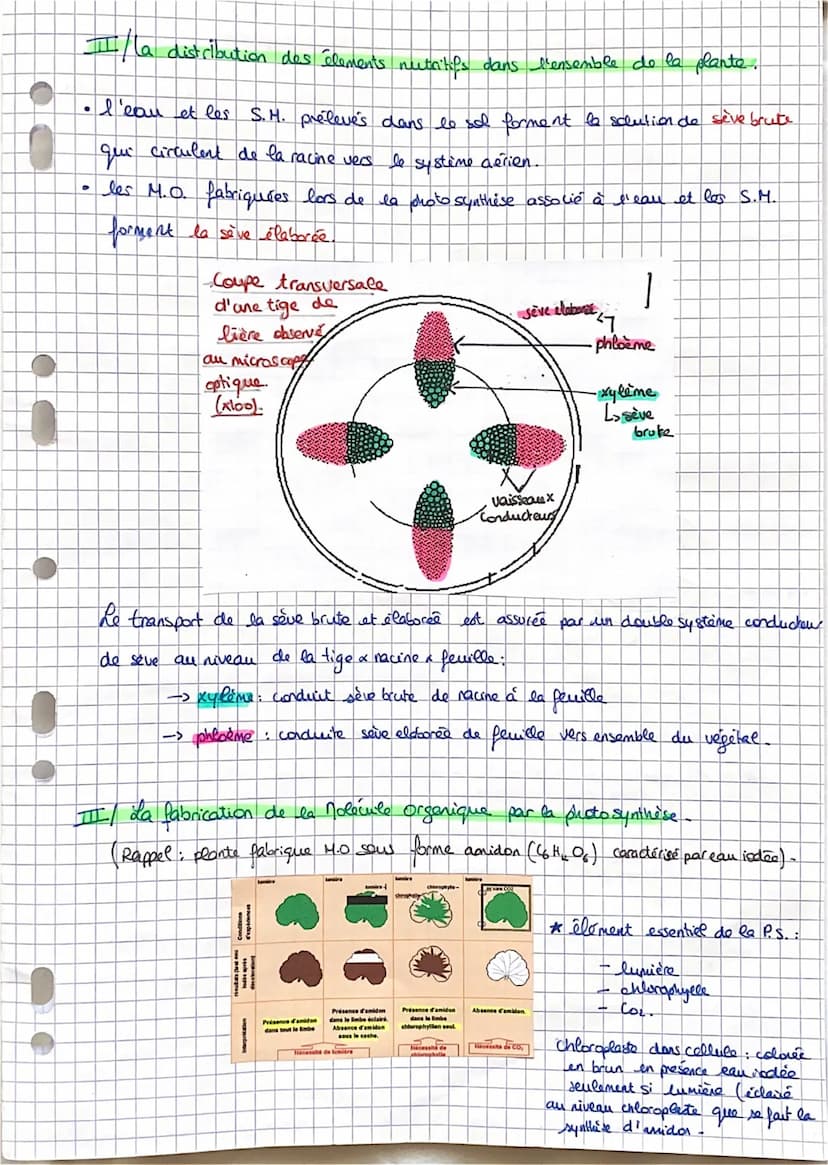 II/ La distribution des élements nutritifs dans l'ensemble de la plante.
• l'eau et les S.M. prélevés dans le sol forment la solution de sève brute
qui circulent de la racine vers le système aérien.
• les M.O. fabriquées lors de la photosynthèse associé à l'eau et les S.M.
forment la sève élaborée.
Coupe transversale
d'une tige de
lière observé
au microscope
optique.
(x100).
sève elaboreé
phloème
xylème
↳ sève
brute
Vaisseaux
Conducteurs
Le transport de la sève brute et élaboreé est assurée par un double système conducteur
de sève au niveau de la tige x racine x feuille :
→ xylème : conduit sève brute de racine à la feuille
→ phloème : conduite sève elaboreé de feuille vers ensemble du végétal.
III/ La fabrication de la Molécule organique par la photosynthèse.
(Rappel : plante fabrique M.O sous forme amidon (C6 H12 O6) caractérisé par eau iodée).
lumière
lumière
lumière
lumière
chlorophylle -
Conditions
d'expériences
Présence d'amidon
dans tout le limbe
Présence d'amidon
dans le limbe éclairé.
Absence d'amidon
sous le cache.
Présence d'amidon
dans le limbe
chlorophyllien seul.
Absence d'amidon.
Interprétation
Nécessité de lumière
Nécessité de
chlorophylle
Nécessité de CO2
* élément essentiel de la P.S. :
- lumière
- chlorophylle
- CO2.
Chloroplaste dans cellule : colorée
en brun en présence eau iodée
seulement si lumière (éclairé
au niveau chloroplaste que se fait la
synthèse d'amidon.